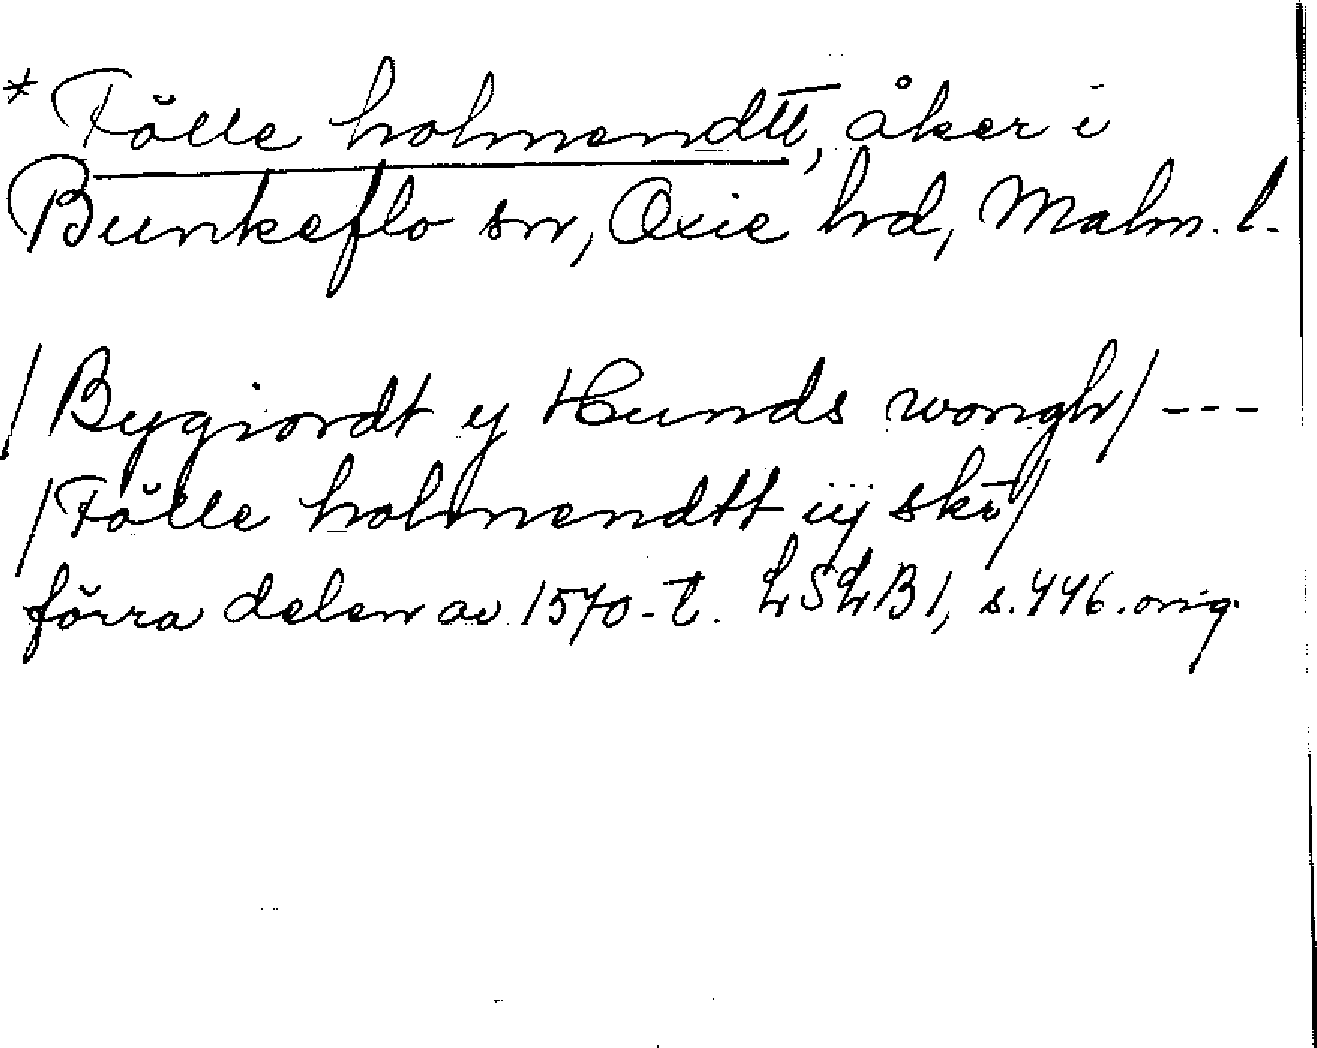 * Fölle holmendtt, åker i
Bunkeflo sn, Oxie hd, Malm. l.
/Bygiordt y Hunds wongh/ ---
/Fölle holmendtt iij ske/
förra delen av 1570-t. LSLB1, s. 446. orig.